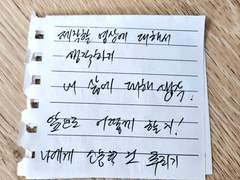 제작할 영상에 대해서
생각하기
내 삶에 대해 생각.
앞으로 어떻게 할 지!
나에게 소중한 것 추리기